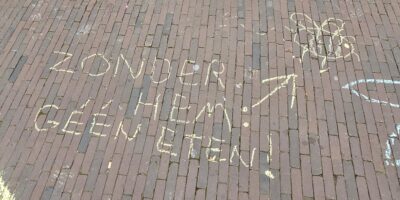 ZONDER
HEM
GÉÉN ETEN!